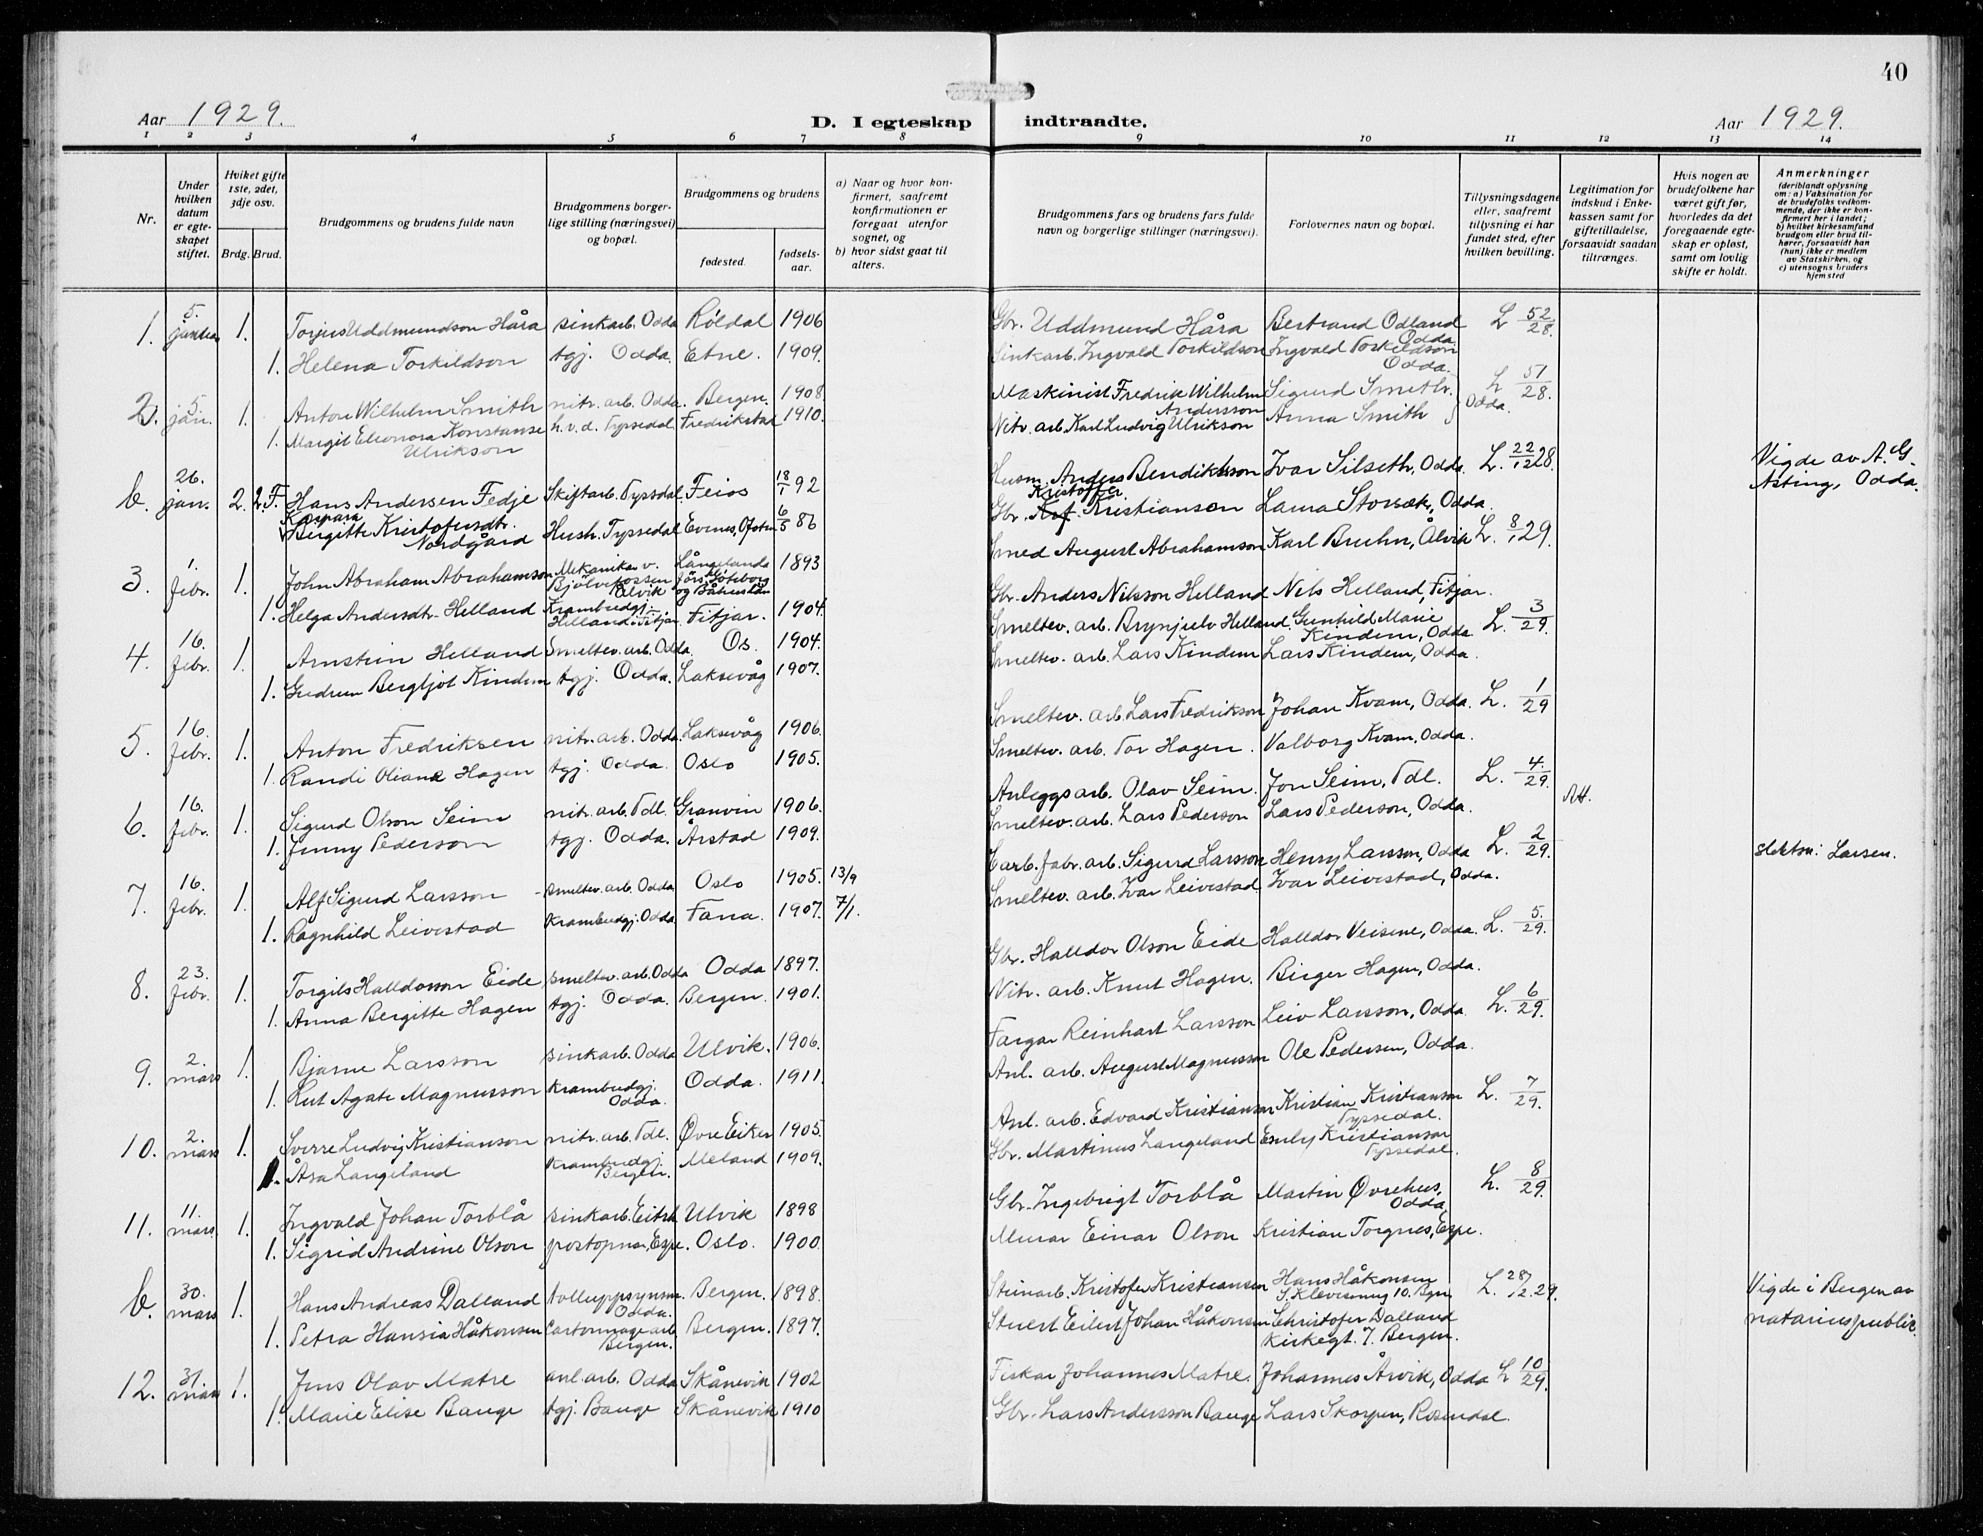 40
Aar 1929.
D. I egteskap indtraadte.
Aar 1929.
1 2 3 4 5 6 7 8 9 10 11 12 13 14
Nr.
Under hvilken datum er egteskapet stiftet.
Hviket gifte 1ste, 2det, 3dje osv.
Brdg. Brud.
Brudgommens og brudens fulde navn
Brudgommens borgerlige stilling (næringsvei) og bopæl.
Brudgommens og brudens
fødested.
fødselsaar.
a) Naar og hvor konfirmert, saafremt konfirmationen er foregaat utenfor sognet, og
b) hvor sidst gaat til alters.
Brudgommens fars og brudens fars fulde navn og borgerlige stillinger (næringsvei).
Forlovernes navn og bopæl.
Tillysningsdagene eller, saafremt tillysning ei har fundet sted, efter hvilken bevilling.
Legitimation for indskud i Enkekassen samt for giftetilladelse, forsaavidt saadan tiltrænges.
Hvis nogen av brudefolkene har været gift før, hvorledes da det foregaaende egteskap er opløst, samt om lovlig skifte er holdt.
Anmerkninger (deriblandt oplysning om: a) Vaksination for de brudefolks vedkommende, der ikke er konfirmert her i landet; b) hvilket kirkesamfund brudgom eller brud tilhører, forsaavidt han (hun) ikke er medlem av Statskirken, og c) utensogns bruders hjemsted
1. 5. januar 1. Torjus Uddmundson Håra sinkarb. Odda Røldal 1906 Gbr. Uddmund Håra Bertrand Odland Odda L 52/28
1. Helena Torkildson tgj. Odda. Etne. 1909. Sinkarb. Ingvald Torkildson Ingvald Torkildson Odda.
2. 5. jan. 1. Anton Wilhelm Smith nitr. arb. Odda. Bergen. 1908. Maskinist Fredrik Wilhelm Andersson Sigurd Smith. L 51/28.
1. Margit Eleonora Konstanse Ulrikson h.v.d. Tyssedal Fredrikstad 1910. Nitr. arb. Karl Ludvig Ulrikson Anna Smith Odda.
b. 26. jan. 2. 2. F. Hans Andersen Fedje Skiftarb. Tyssedal. Feios 18/1 92 Husm. Anders Bendikson Ivar Silseth, Odda. L. 22/12 28. Vigde av A. G. Asting, Odda.
Kaspara Bergitte Kristofersdtr. Nordgård Hush. Tyssedal Evenes, Ofoten 6/5 86 Gbr. Kristoffer Kristianson Laura Storvæk, Odda.
3. 1. febr. 1. John Abraham Abrahamson Mekaniker v. Bjölvefossen Ålvik Långelanda förs. Göteborg og Båhuslän 1893 Smed August Abrahamson Karl Bruhn, Ålvik L. 8/1 29.
1. Helga Andersdtr. Helland Krambudgj. Helland, Fitjar Fitjar. 1904. Gbr. Anders Nilsson Helland Nils Helland, Fitjar.
4. 16. febr. 1. Arnstein Helland Smeltev. arb. Odda Os. 1904. Smeltev. arb. Brynjulv Helland. Gunhild Marie Kindem, Odda L. 3/29.
1. Gudrun Bergljot Kindem tgj. Odda. Laksevåg 1907. Smeltev. arb. Lars Kindem Lars Kindem, Odda.
5. 16. febr. 1. Anton Fredriksen nitr. arb. Odda. Laksevåg 1906. Smeltev. arb. Lars Fredrikson Johan Kvam, Odda. L. 1/29
1. Randi Oliana Hagen tgj. Odda. Oslo 1905. Smeltev. arb. Tor Hagen. Valborg Kvam, Odda.
6. 16. febr. 1. Sigurd Olson Seim nitr. arb. Tdl. Granvin 1906. Anleggsarb. Olav Seim. Jon Seim, Tdl. L. 4./29. Att.
1. Jenny Pederson tgj. Odda. Årstad 1909. Smeltev. arb. Lars Pederson Lars Pederson, Odda.
7. 16. febr. 1. Alf Sigurd Larsson smeltev. arb. Odda Oslo 1905. 13/9 Carb. fabr. arb. Sigurd Larsson Henry Larsson, Odda L. 2/29. Larsen.
1. Ragnhild Leivestad Krambudgj. Odda Fana. 1907. 7/1. Smeltev. arb. Ivar Leivestad Ivar Leivestad, Odda.
8. 23. febr. 1. Torgils Halldorson Eide smeltev. arb. Odda Odda 1897. Gbr. Halldor Olson Eide Halldor Veisene, Odda. L. 5./29.
1. Anna Bergitte Hagen tgj. Odda. Bergen. 1901. Nitr. arb. Knut Hagen. Birger Hagen, Odda.
9. 2. mars 1. Bjarne Larsson sinkarb. Odda Ulvik. 1906. Fargar Reinhart Larsson Leiv Larsson, Odda L. 6/29.
1. Rut Agate Magnusson Krambudgj. Odda. Odda. 1911. Anl. arb. August Magnusson Ole Pedersen, Odda.
10. 2. mars 1. Sverre Ludvig Kristianson nitr. arb. Tdl. Øvre Eiker 1905. Anl. arb. Edvard Kristianson Kristian Kristianson Tyssedal. L. 7/29.
1. Åsa Langeland Krambudgj. Bergen. Meland 1909. Gbr. Martinus Langeland Emly Kristianson Tyssedal.
11. 11. mars 1. Ingvald Johan Torblå sinkarb. Eitrh. Ulvik 1898 Gbr. Ingebrigt Torblå Martin Øvrehus, Odda L. 8/29.
1. Sigrid Andrine Olson postopnar, Espe. Oslo. 1900. Murar Einar Olson Kristian Torgnes, Espe.
b. 30. mars 1. Hans Andreas Dalland tolluppsynsm. Odda. Bergen. 1898. Steinarb. Kristofer Kristiansen Hans Håkonsen S. Kleiveveg 10. Bgn. L. 28/12. 29. Vigde i Bergen av notarius public.
1. Petra Hansia Håkonsen Cartonnage arb. Bergen. Bergen. 1897. Stuert Eilert Johan Håkonsen Christofer Dalland Kirkegt. 7. Bergen.
12. 31. mars 1. Jens Olav Matre anl. arb. Odda Skånevik 1902 Fiskar Johannes Matre. Johannes Årvik, Odda L 10/29.
1. Marie Elise Bauge tgj. Bauge Skånevik 1910 Gbr. Lars Andersson Bauge Lars Skorpen, Rosendal.